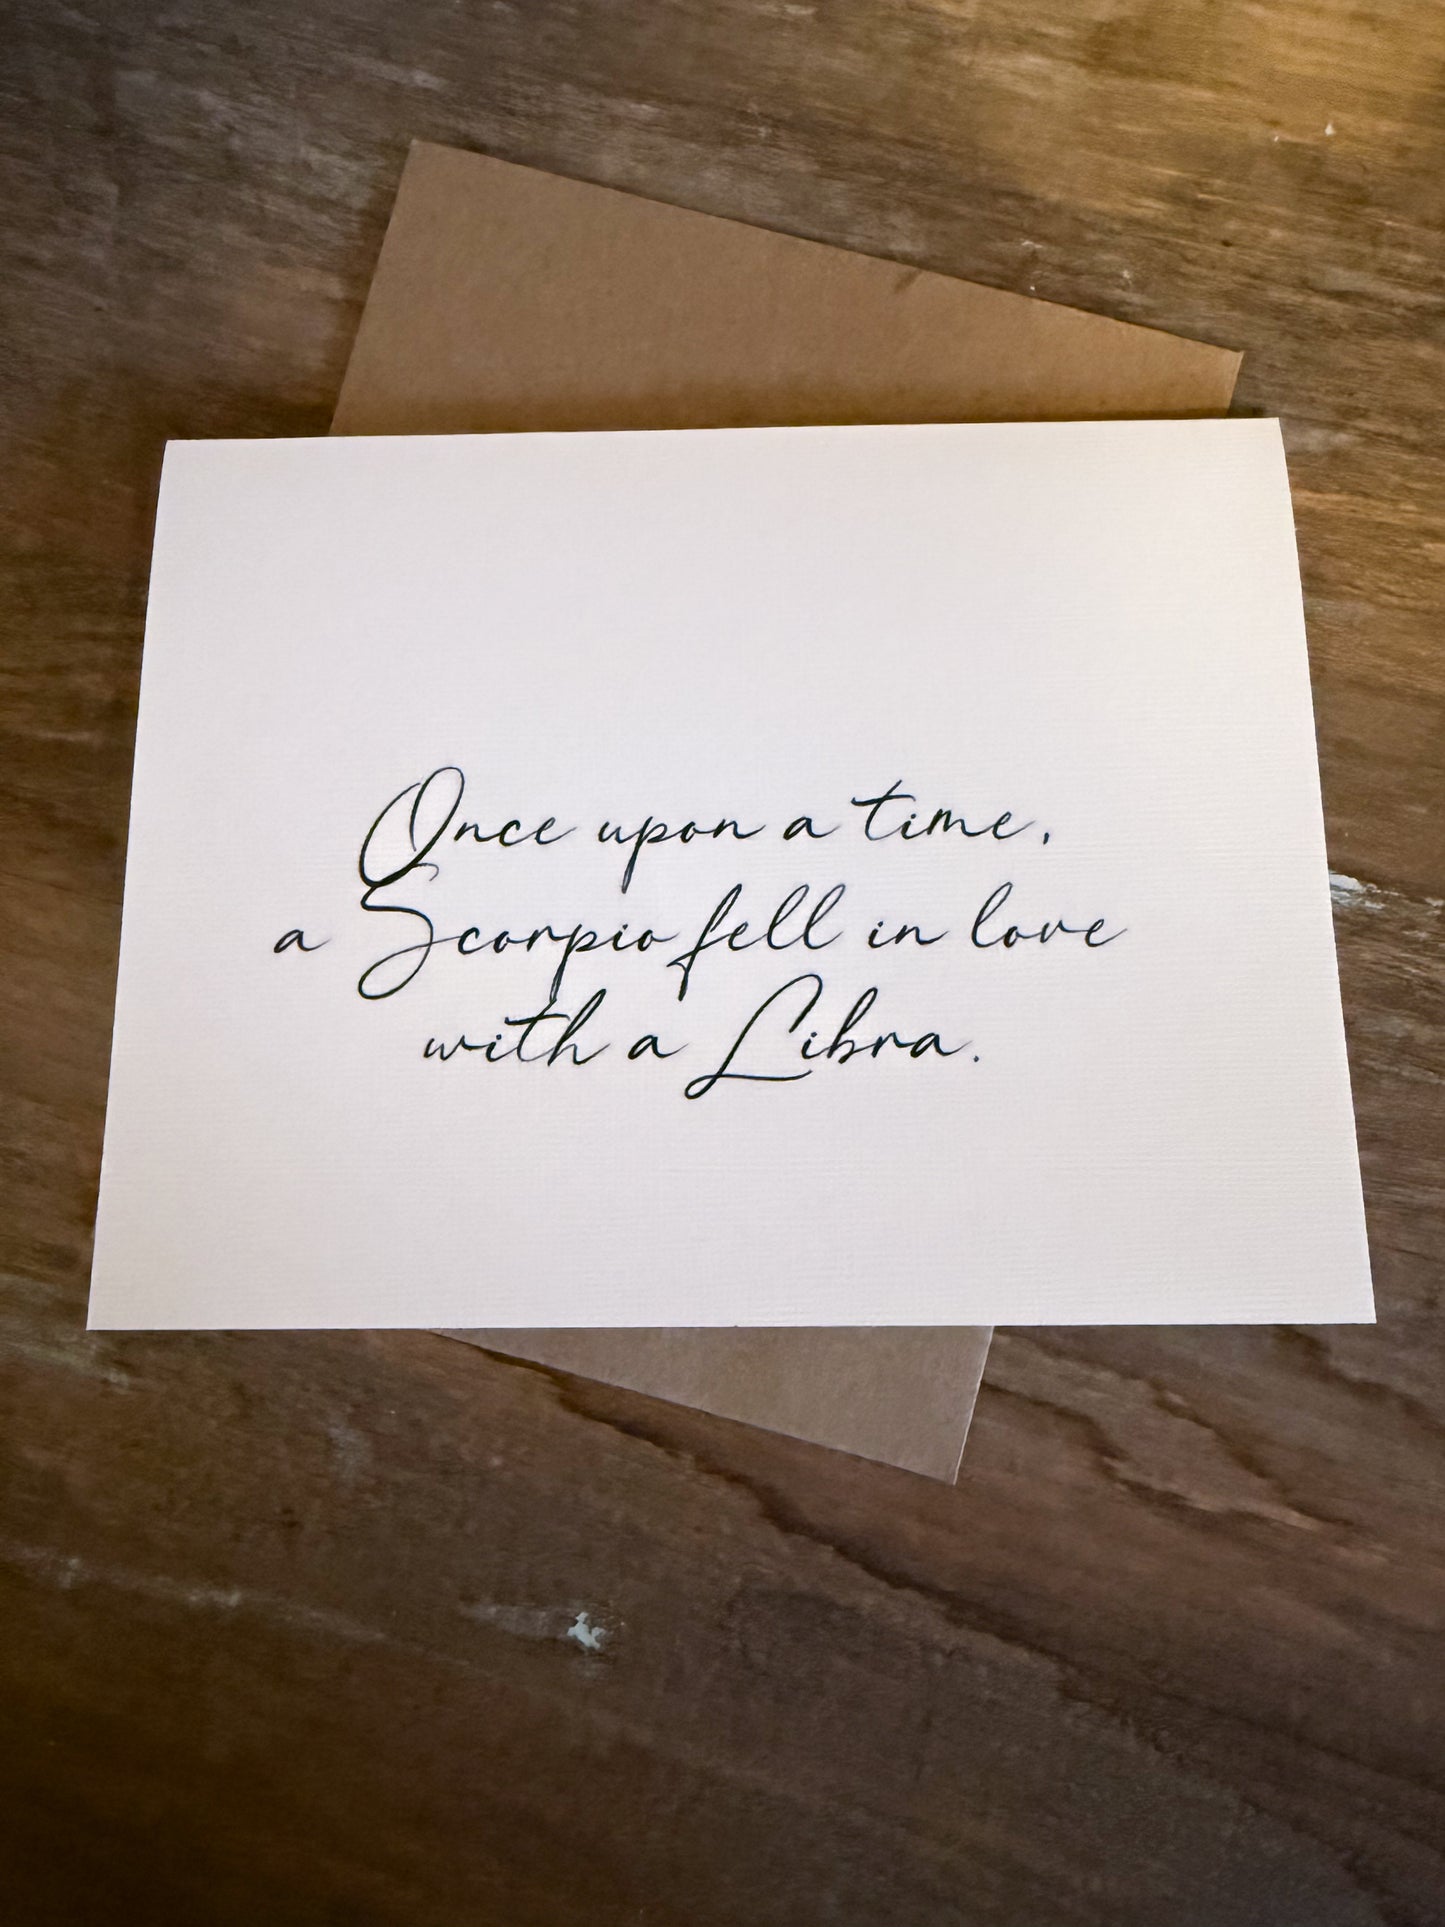 Once upon a time,
a Scorpio fell in love
with a Libra.